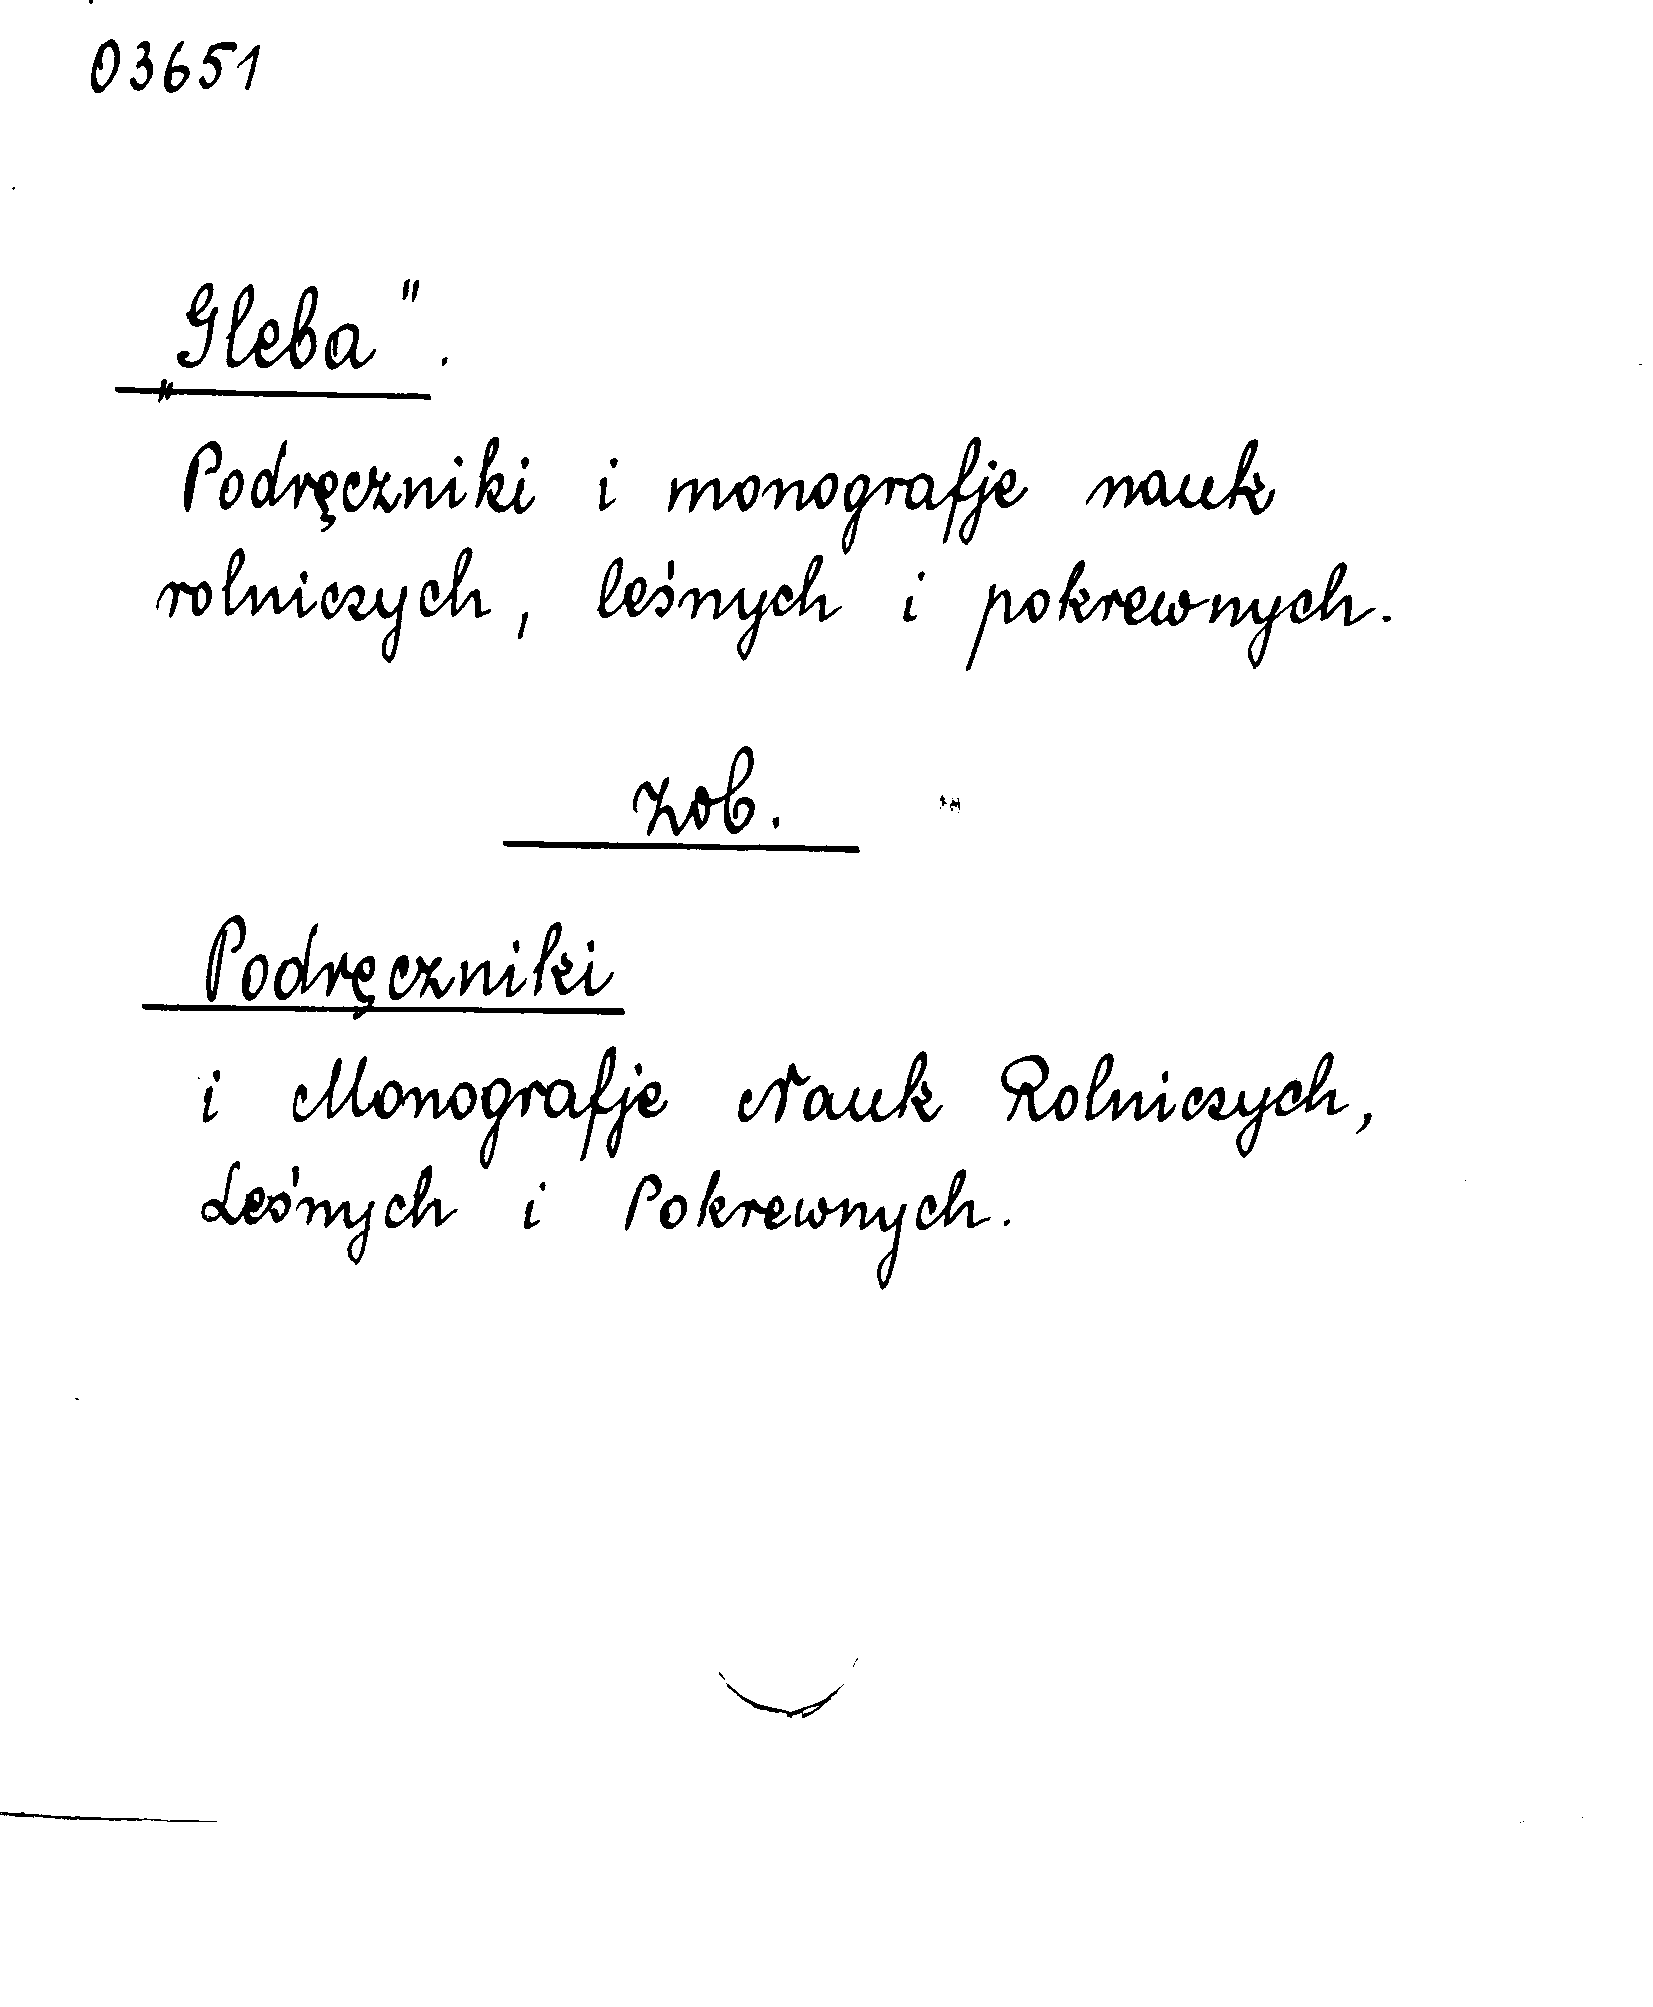 03651
„Gleba".
Podręczniki i monografje nauk
rolniczych, leśnych i pokrewnych.
zob.
Podręczniki
i Monografje Nauk Rolniczych,
Leśnych i Pokrewnych.